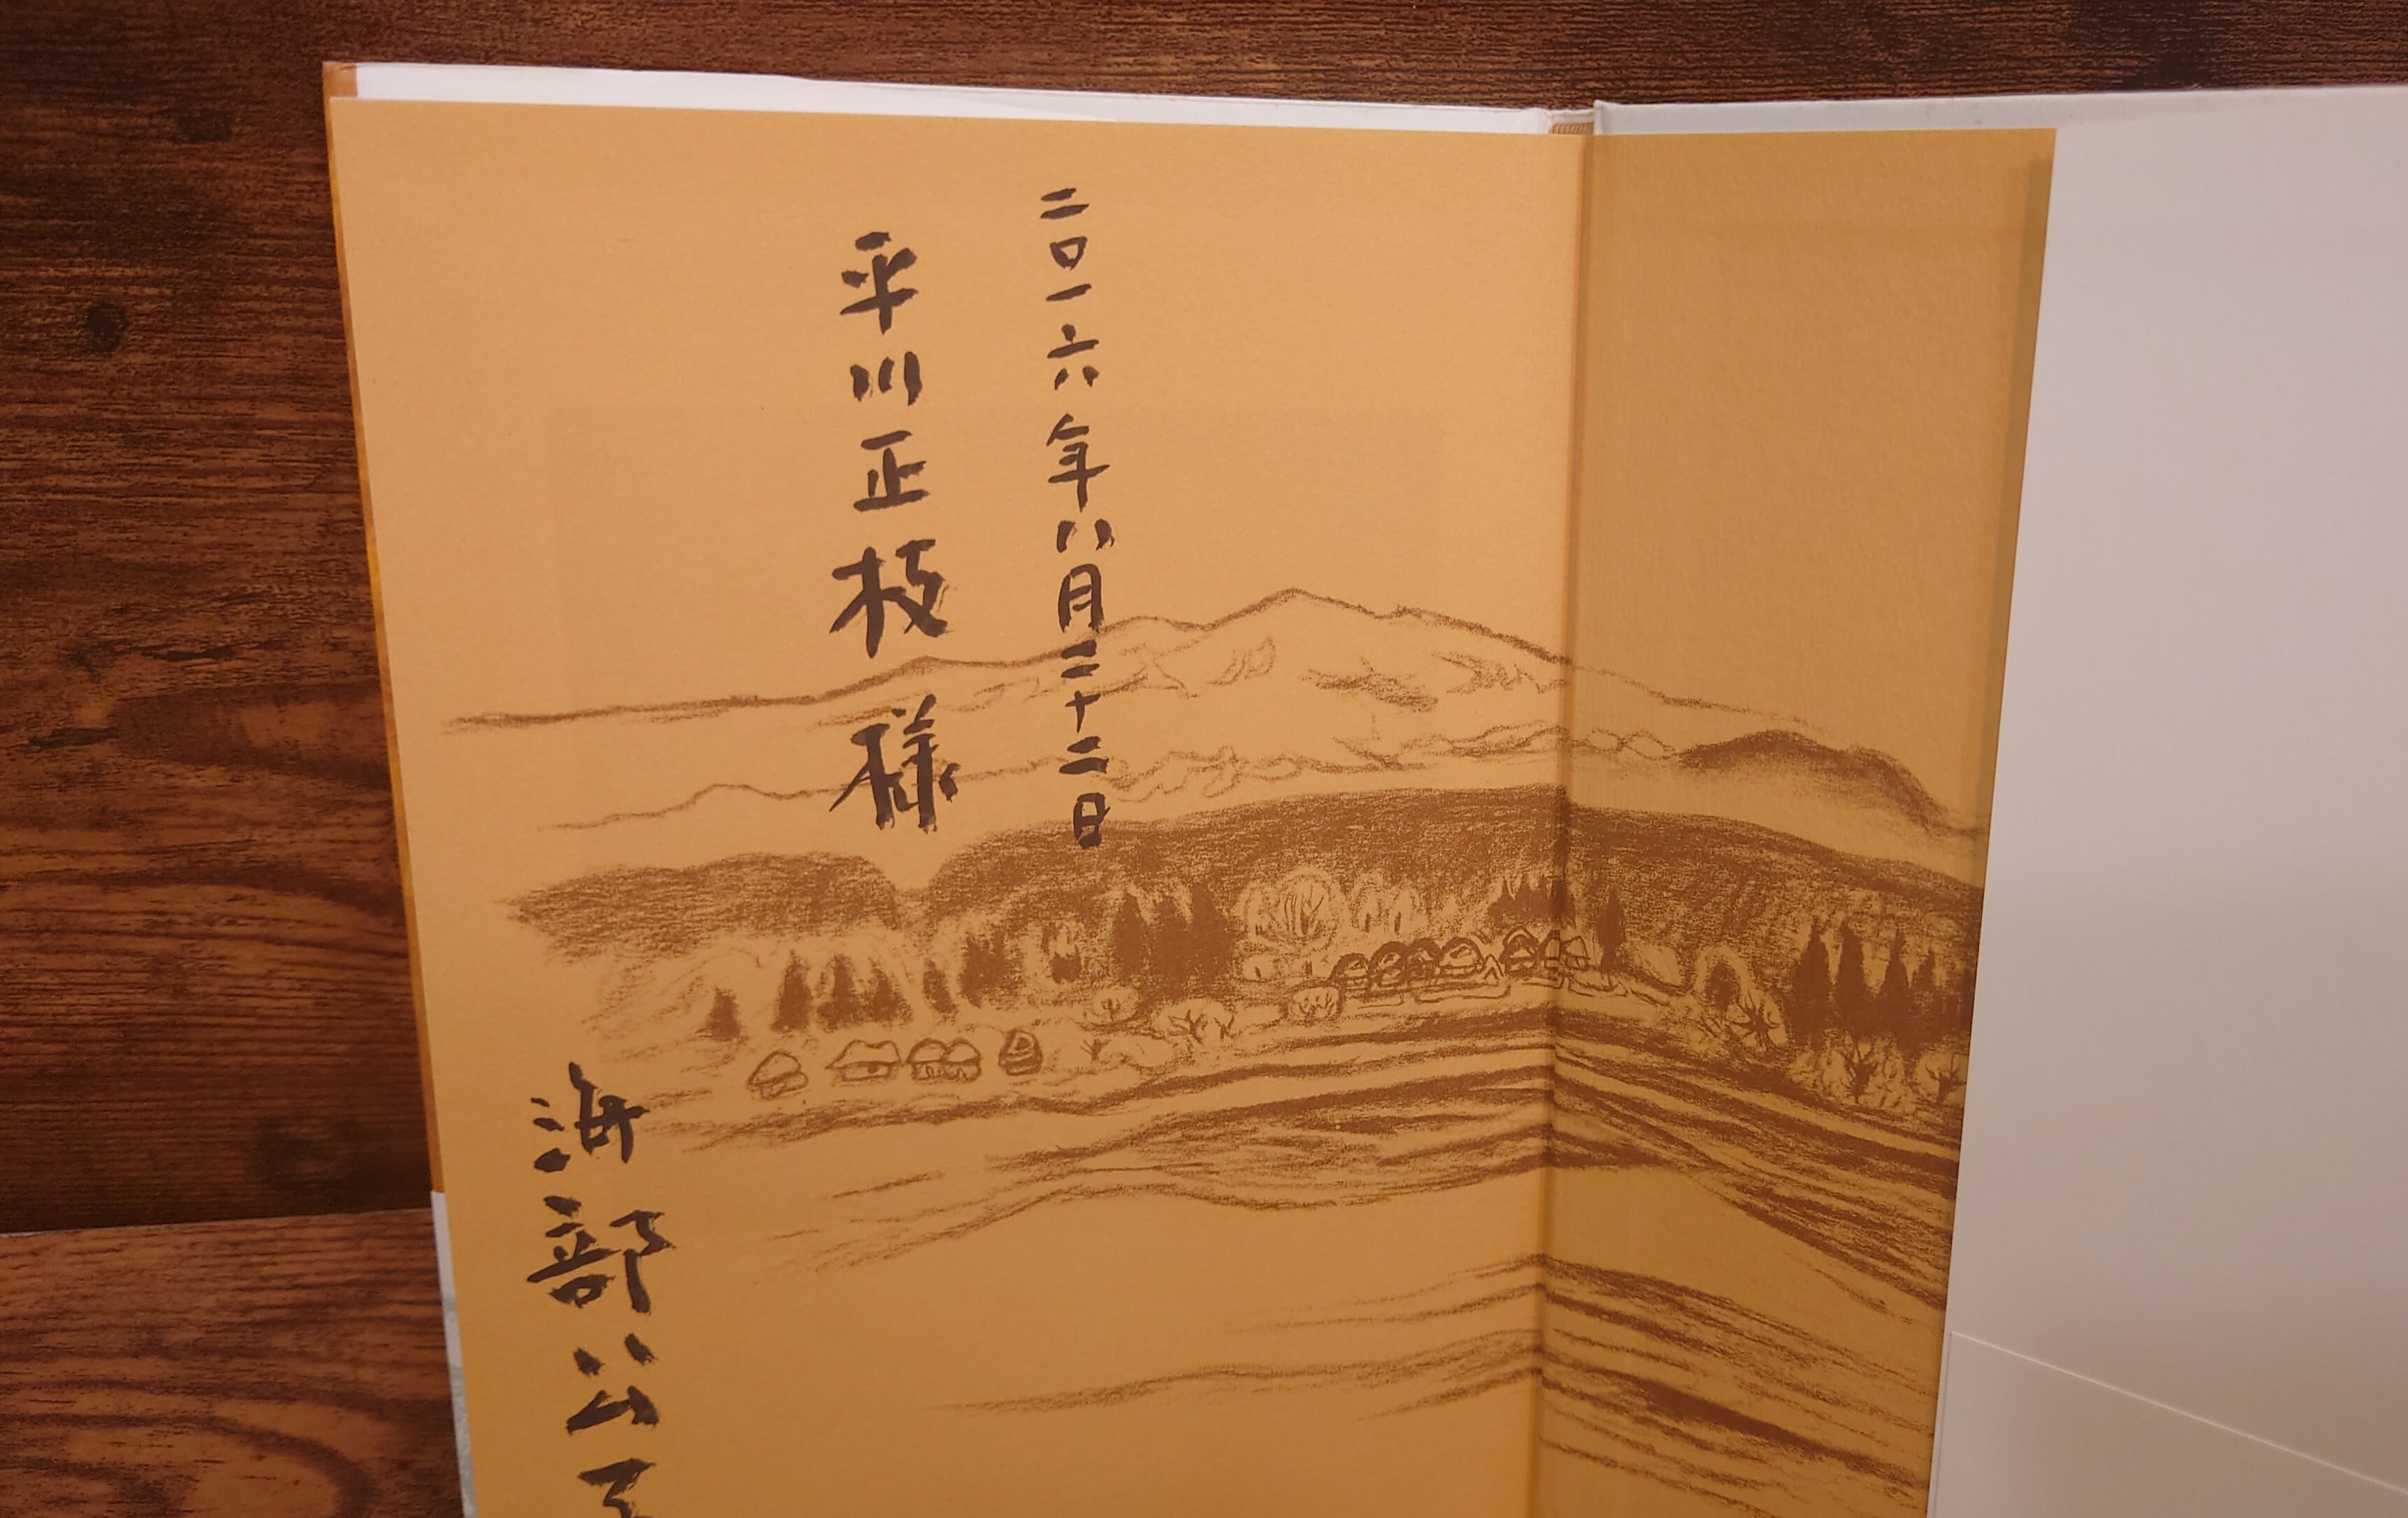 二〇一六年八月二十二日
平川正枝 様
海部公子